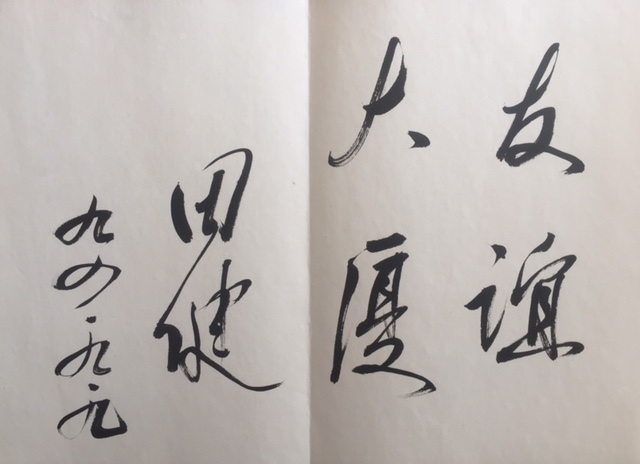 友谊
大厦
田健
九四.九.九